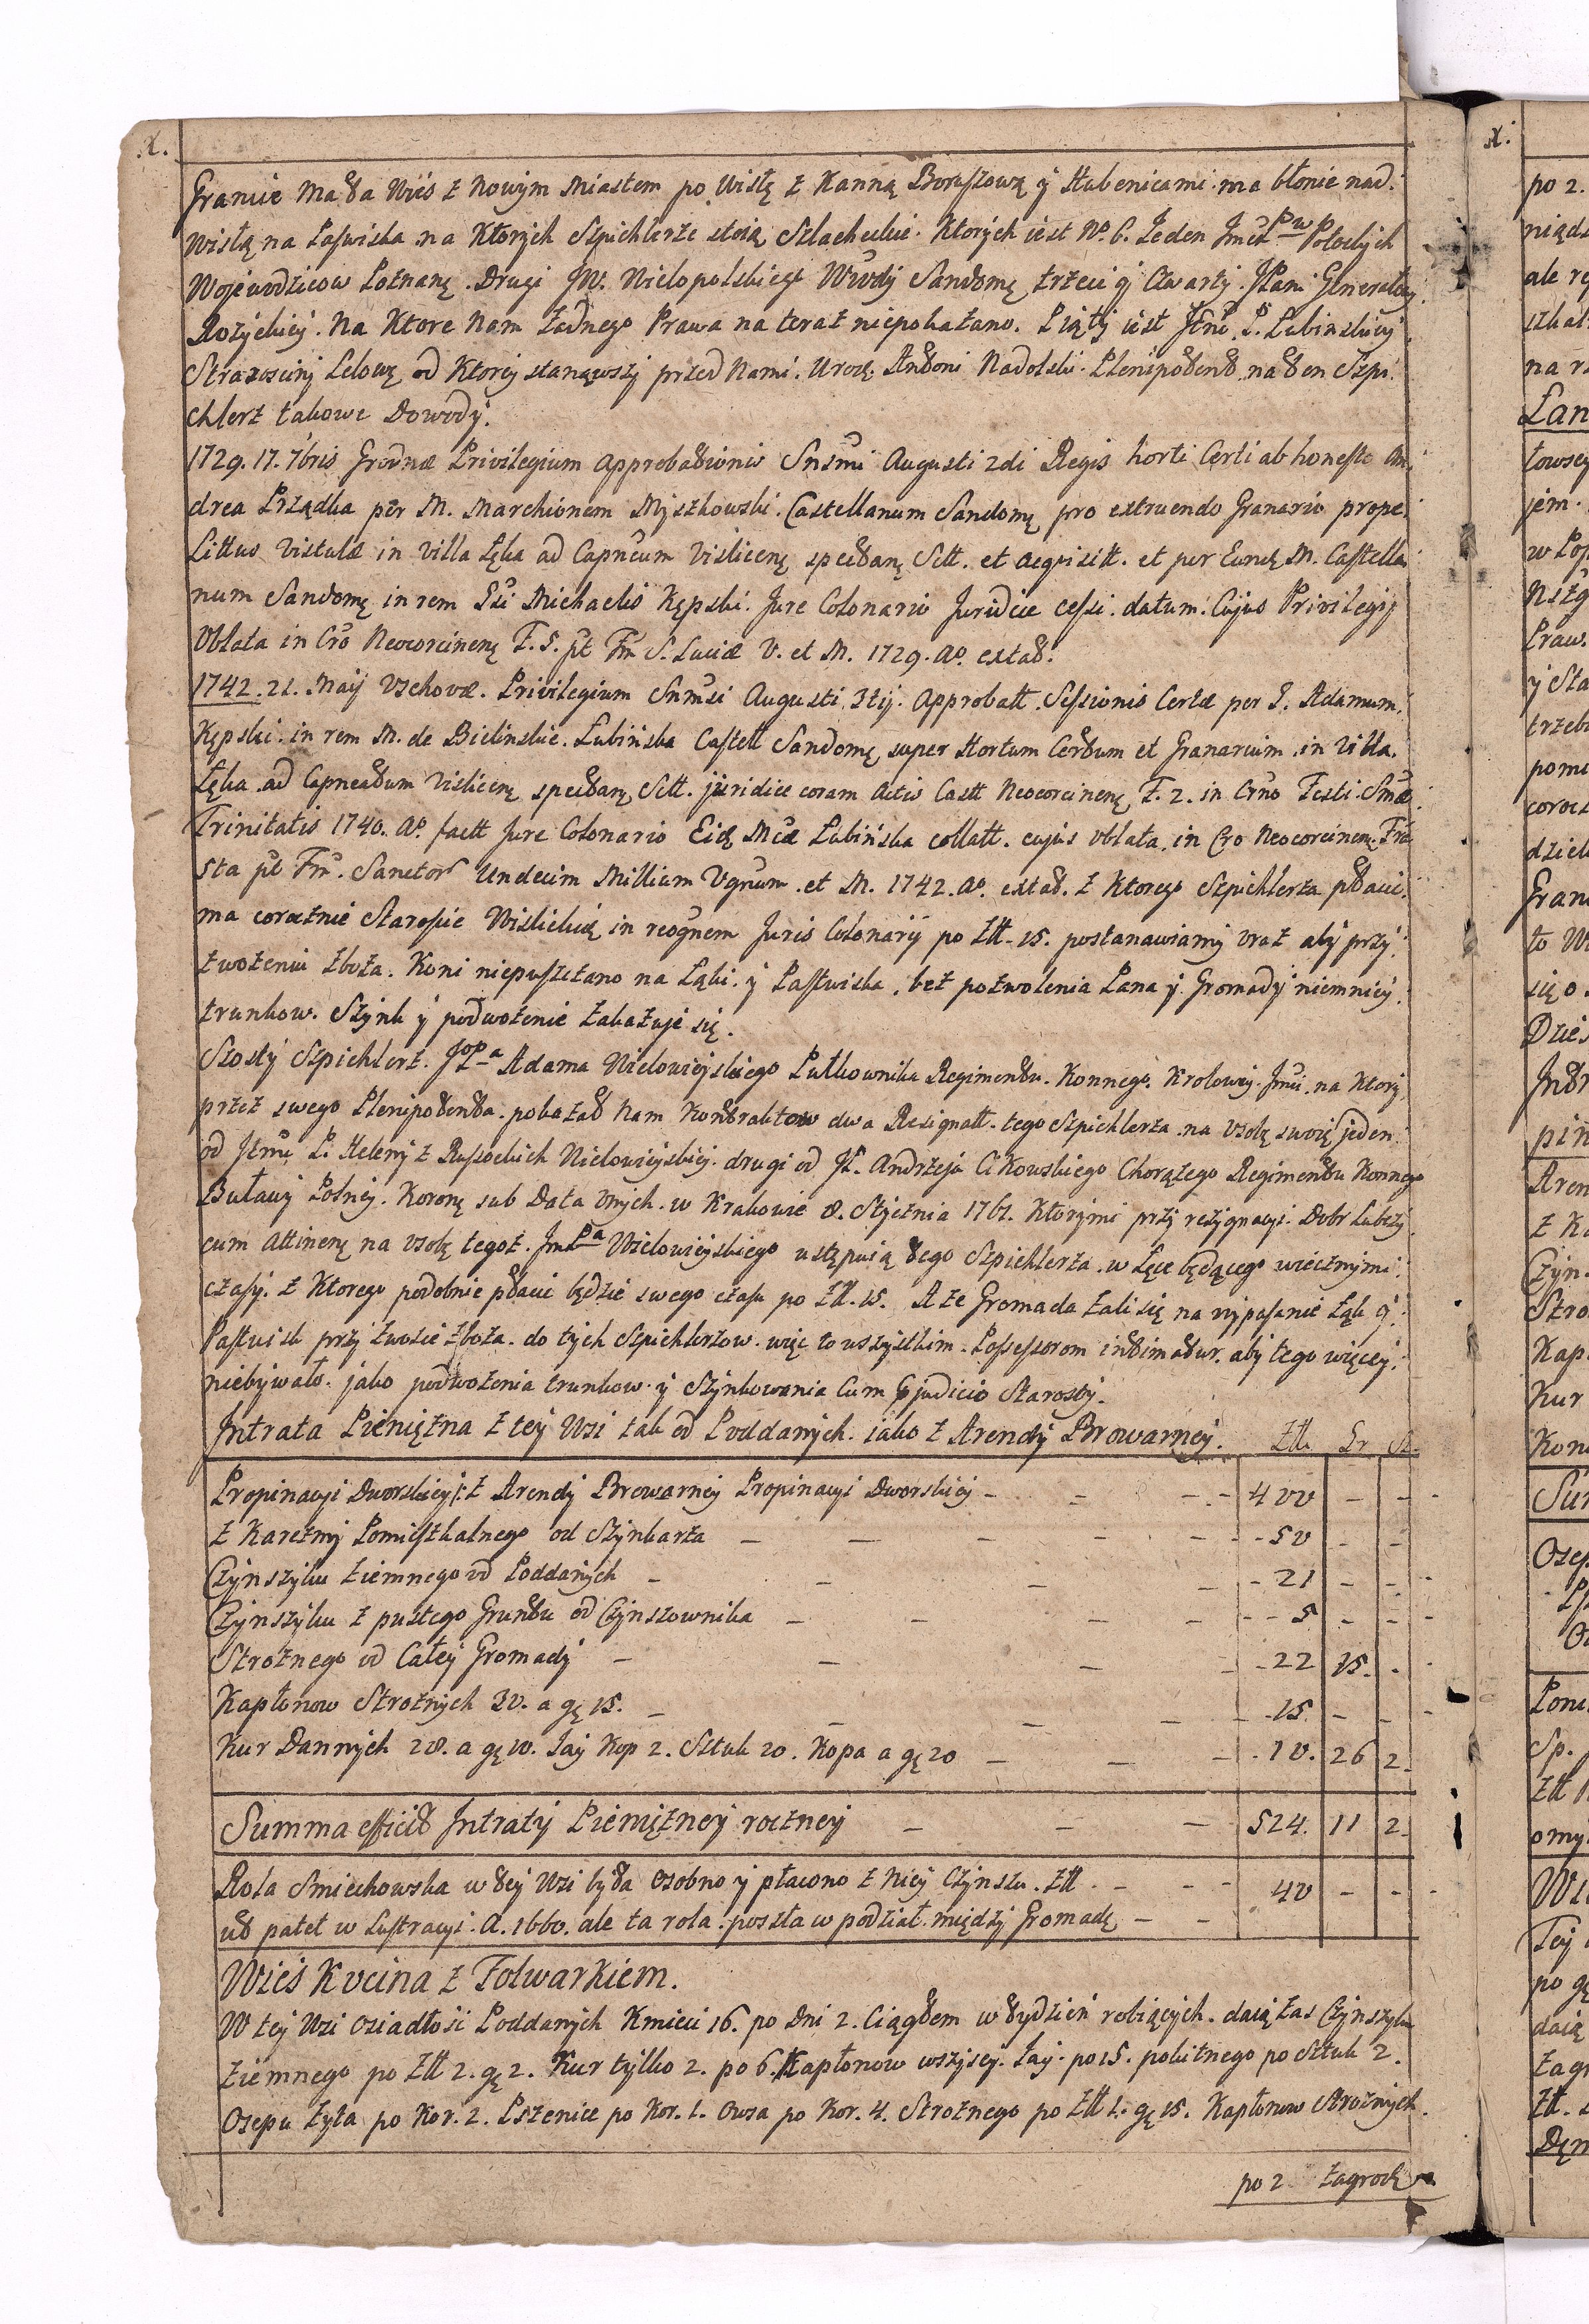 X.
Granice ma ta Wieś z Nowym Miastem po Wisłę z Kanną Boruszową y Hubenicami ma błonie nad
Wisłą na Paswiska na Ktorych Szpichlerze stoią Szlacheckie. Ktorych iest No. 6. Jeden Jmci PPw Potockich
Wojewodzicow Poznanę. Drugi JW. Wielopolskiego Wwdy Sandomę trzeci y Czwarty. JPani Generałowy
Rozyckiey. Na Ktore Nam żadnego Prawa na teraz niepokazano. Piąty iest Jmc. P. Lubinskiey
Starosciny Lelowę od Ktorey stanąwszy przed Nami. Urodz. Antoni Nadolski. Plenipotent na ten Szpi
chlerz takowe Dowody.
1729. 17. 7bris Grodnæ Privilegium Approbationis Snsmi Augusti 2di Regis horti Certi ab honesto An
drea Prządka per M. Marchionem Myszkowski. Castellanum Sandomę pro extruendo Granario prope
Littus Vistulæ in Villa Łęka ad Capneum Vislicenę spectanę Sctt. et acquisitt. et per Eundę M. Castella
num Sandomę in rem Gsi Michaelis Kępski. Jure Colonario Juridice cessi. datum. Cujus Privilegij
Oblata in Cro Neocorcinenę F. 5. pt Fm S. Luciæ V. et M. 1729. Ao. extat.
1742. 21. Maij Vschovæ. Privilegium Snmsi Augusti 3tij. Approbatt. Sessionis Certæ per G. Adamum
Kępski. in rem M. de Bielinskie. Lubińska Castell Sandomę super Hortum Certum et Granarium in Villa
Łęka ad Capneatum Vislicenę spectanę Sctt. juridice coram Actis Castt Neocorcinenę F. 2. in Crno Festi Smæ
Trinitatis 1740. Ao. factt Jure Colonario Eidę Mcæ Lubińska collatt. cujus oblata in Cro Neocorcinenę. Fria
6ta pt Fm. Sanctor Undecim Millium Vgnum et M. 1742. Ao. extat. z Ktorego Szpichlerza płacić
ma corocznie Staroscie Wislickię in recognem Juris Colonarij po Złt. 15. postanawiamy oraz aby przy
zwożeniu zboża. Koni niepuszczano na Łąki y Pastwiska, bez pozwolenia Pana y Gromady niemniey
trunkow. Szynk y podwożenie zakazuje się.
Szosty Szpichlerz. JoPa Adama Wielowieyskiego Pułkownika Regimentu Konnego Krolowey Jmci na Ktory
przez swego Plenipotenta pokazał Nam Kontraktow dwa Resignatt. tego Szpichlerza na osobę swoię jeden
od Jmci P. Heleny z Russockich Wielowieyskiey. drugi od JP. Andrzeja Cikowskiego Chorążego Regimentu Konnego
Buławy Polney. Koronę sub Data onych w Krakowie 8. Stycznia 1761. Ktorymi przy rezygnacyi Dobr Lubczy
cum Attinenę na osobę tegoż. JmPa Wielowieyskiego ustępuią tego Szpichlerza w Łęce będącego wiecznymi
czasy. z Ktorego podobnie płacić będzie swego czasu po Złt. 15. A że Gromada żali się na wypasanie Łąk y
Pastwisk przy zwozie zboża do tych Szpichlerzow. więc to wszystkim Possessorom intimatur. aby tego więcey
niebywało. jako podwożenia trunkow y Szynkowania Cum pjudicio Starosty.
Intrata Pieniężna z tey Wsi tak od Poddanych iako z Arendy Browarney. Złt. Gr. Sz.
Propinacyi Dworskiey: z Arendy Browarney Propinacyi Dworskiey - 400 - -
z Karczmy Pomieszkalnego od Szynkarza - 50 - -
Czynszyku ziemnego od Poddanych - 21 - -
Czynszyku z pustego Gruntu od Czynszownika - 5 - -
Strożnego od Całey Gromady - 22 15. -
Kapłonow Strożnych 30. a gę 15. - 15 - -
Kur Dannych 28. a gę 10. Jay Kop 2. Sztuk 20. Kopa a gę 20 - 10. 26 2.
Summa efficit Intraty Pieniężney roczney - 524. 11 2.
Rola Smiechowska w tey Wsi była Osobno y płacono z niey Czynszu. Złt. - 40 - -
ut patet w Lustracyi. A. 1660. ale ta rola poszła w podział między Gromadę
Wieś Kvcina z Folwarkiem.
W tey Wsi osiadłości Poddanych Kmieci 16. po Dni 2. Ciągłem w tydzień robiących. daią zas Czynszyku
ziemnego po Złt 2. gę 2. Kur tylko 2. po 6. Kapłonow wszyscy. Jay po 15. pokitnego po Sztuk 2.
Osepu Żyta po Kor. 2. Pszenice po Kor. 1. Owsa po Kor. 4. Strożnego po Złt 1. gę 15. Kapłonow Strożnych
po 2 Zagrodę